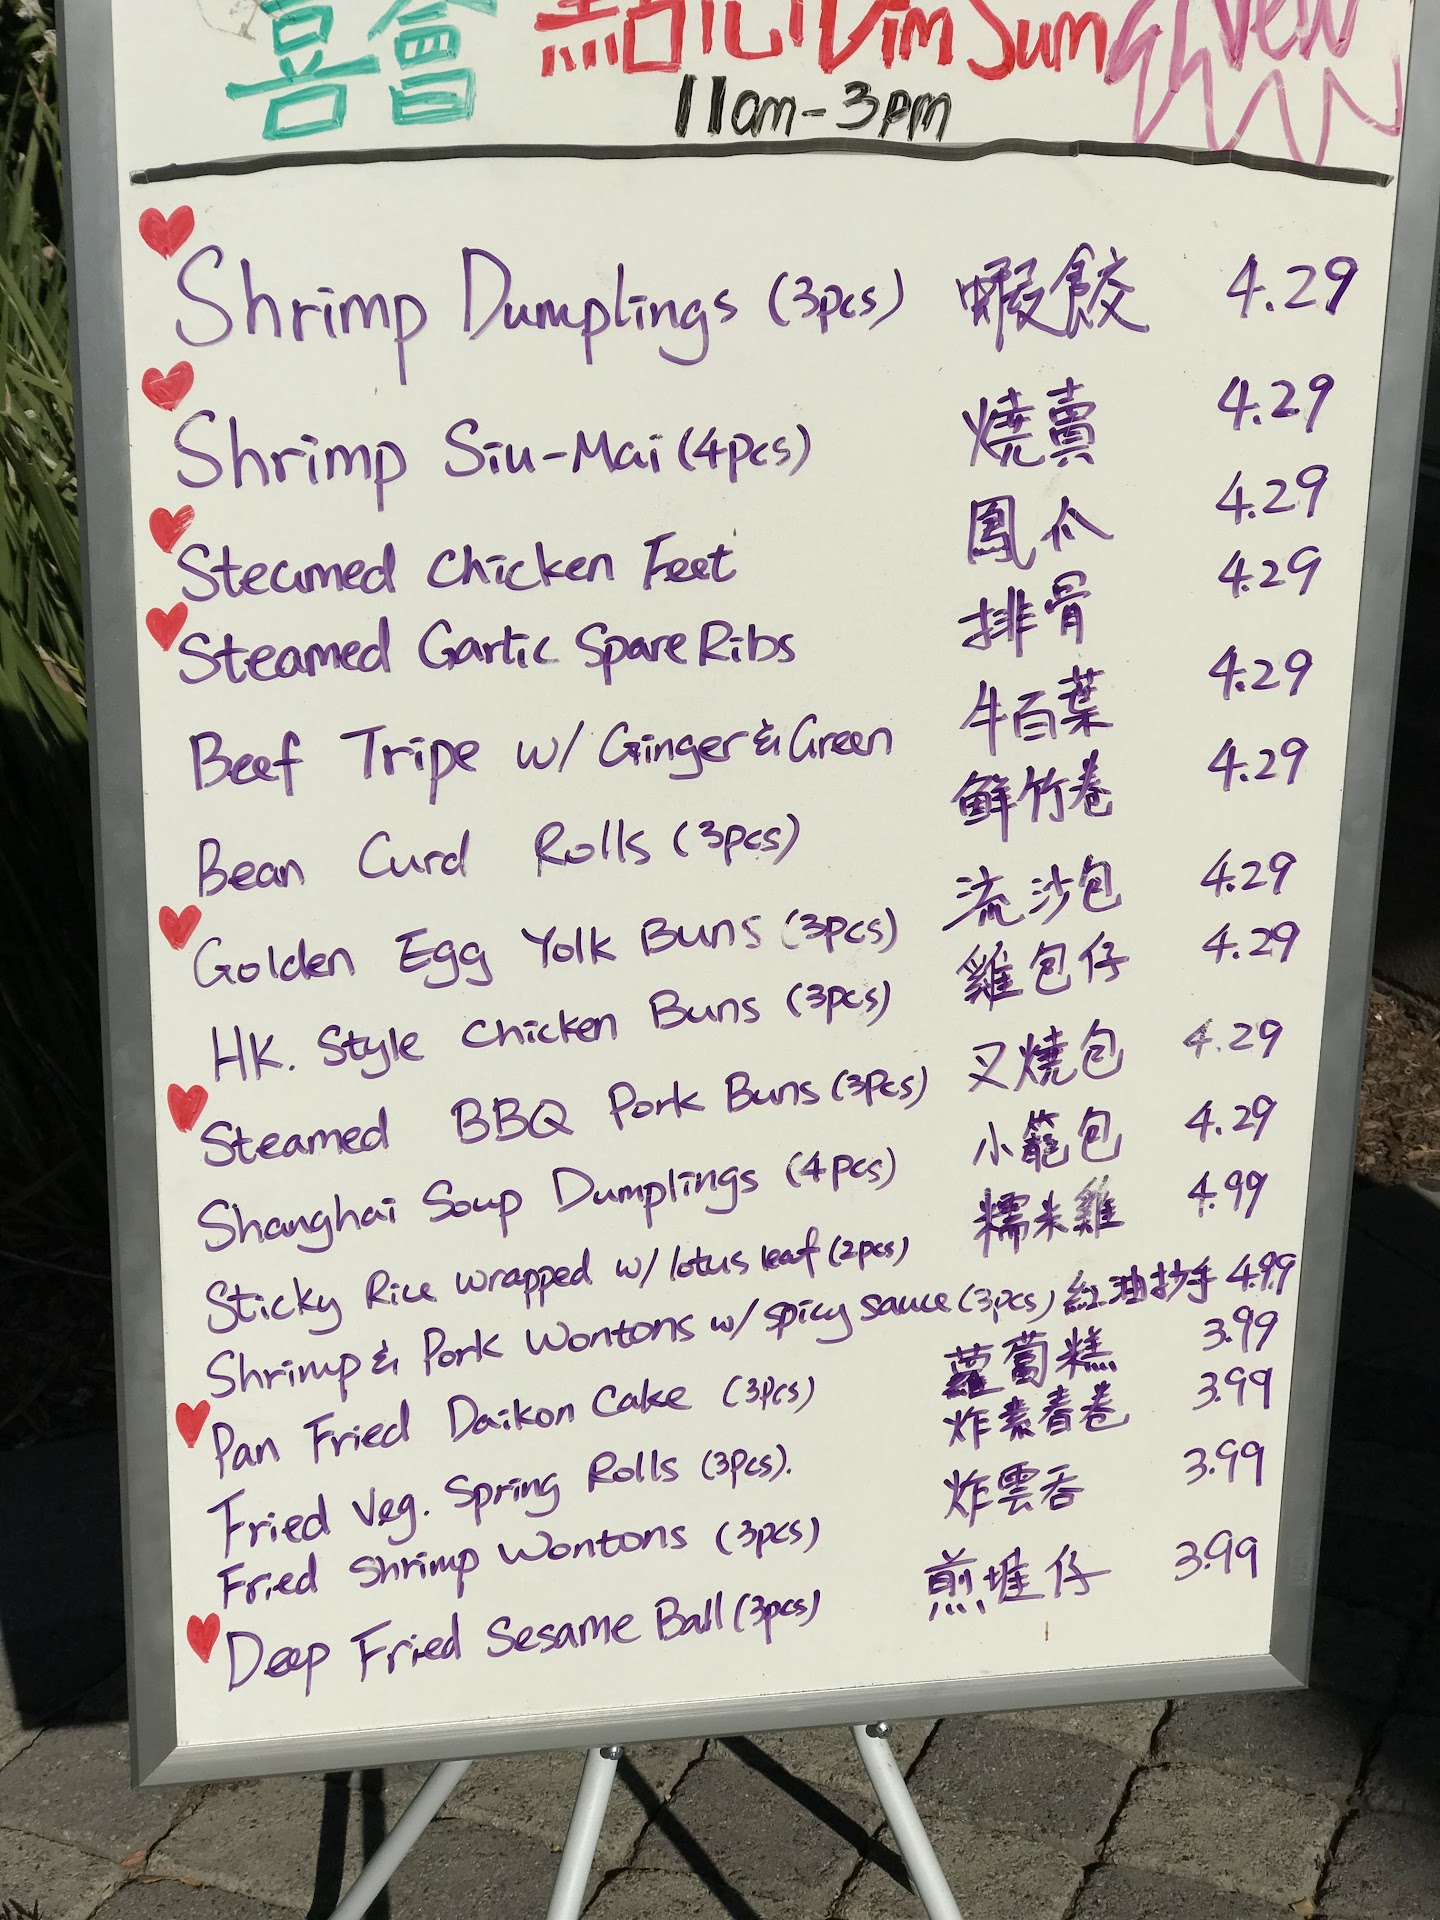 喜會 點心 Dim Sum
11am-3pm
Shrimp Dumplings (3pcs) 蝦餃 4.29
Shrimp Siu-Mai (4pcs) 燒賣 4.29
Steamed Chicken Feet 鳳爪 4.29
Steamed Garlic Spare Ribs 排骨 4.29
Beef Tripe w/ Ginger & Green 牛百葉 4.29
Bean Curd Rolls (3pcs) 鮮竹卷 4.29
Golden Egg Yolk Buns (3pcs) 流沙包 4.29
HK. Style Chicken Buns (3pcs) 雞包仔 4.29
Steamed BBQ Pork Buns (3pcs) 叉燒包 4.29
Shanghai Soup Dumplings (4pcs) 小籠包 4.29
Sticky Rice wrapped w/ lotus leaf (2pcs) 糯米雞 4.99
Shrimp & Pork Wontons w/ spicy sauce (3pcs) 紅油抄手 4.99
Pan Fried Daikon Cake (3pcs) 蘿蔔糕 3.99
Fried Veg. Spring Rolls (3pcs). 炸素春卷 3.99
Fried Shrimp Wontons (3pcs) 炸雲吞 3.99
Deep Fried Sesame Ball (3pcs) 煎堆仔 3.99